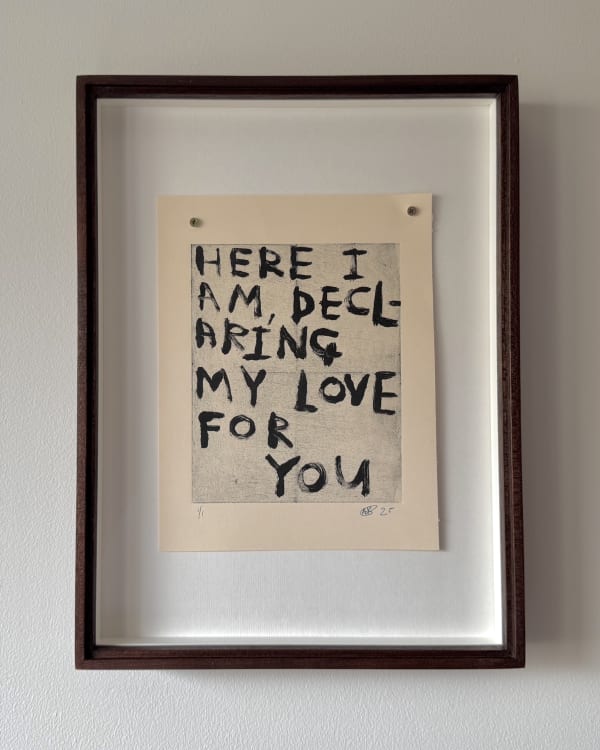 HERE I
AM, DECL-
ARING
MY LOVE
FOR
YOU
1/1
25